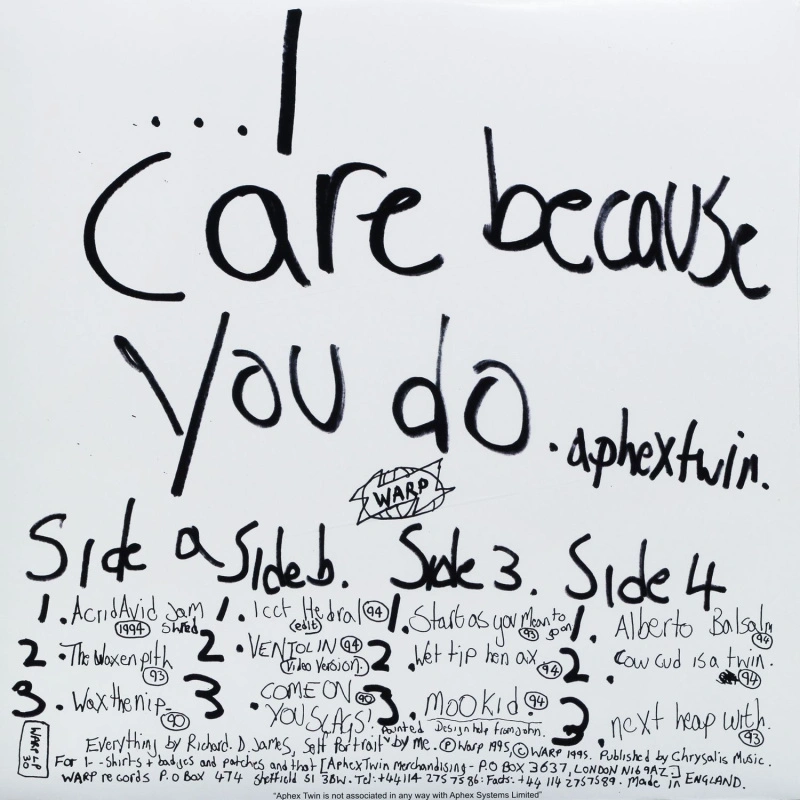 ...I
Care because
You do.
aphextwin.
WARP
Side a
1. AcridAvid Jam
1994 Shred
2. The Waxen pith
93
3. Wax the nip
90
Side b.
1. Icct Hedral 94
(edit)
2. VENTOLIN 94
(Video Version).
3. COME ON 90
YOU SLAGS!
Side 3.
1. Start as you Mean to
93 go on
2. Wet tip hen ax. 94
3. Mookid. 94
Side 4
1. Alberto Balsalm
94
2. Cow cud is a twin.
94
3. next heap with.
93
WARP LP
30
Painted Design help from John.
Everything by Richard. D. James, Self Portrait by me. Ⓟ Warp 1995, © WARP 1995. Published by Chrysalis Music.
For T-shirts + badges and patches and that [AphexTwin Merchandising - P.O BOX 3637, LONDON N16 9AZ]
WARP records P.O Box 474 Sheffield S1 3BW. Tel: +44114 275 7586: Facts: +44 114 2757589. Made in ENGLAND.
"Aphex Twin is not associated in any way with Aphex Systems Limited"